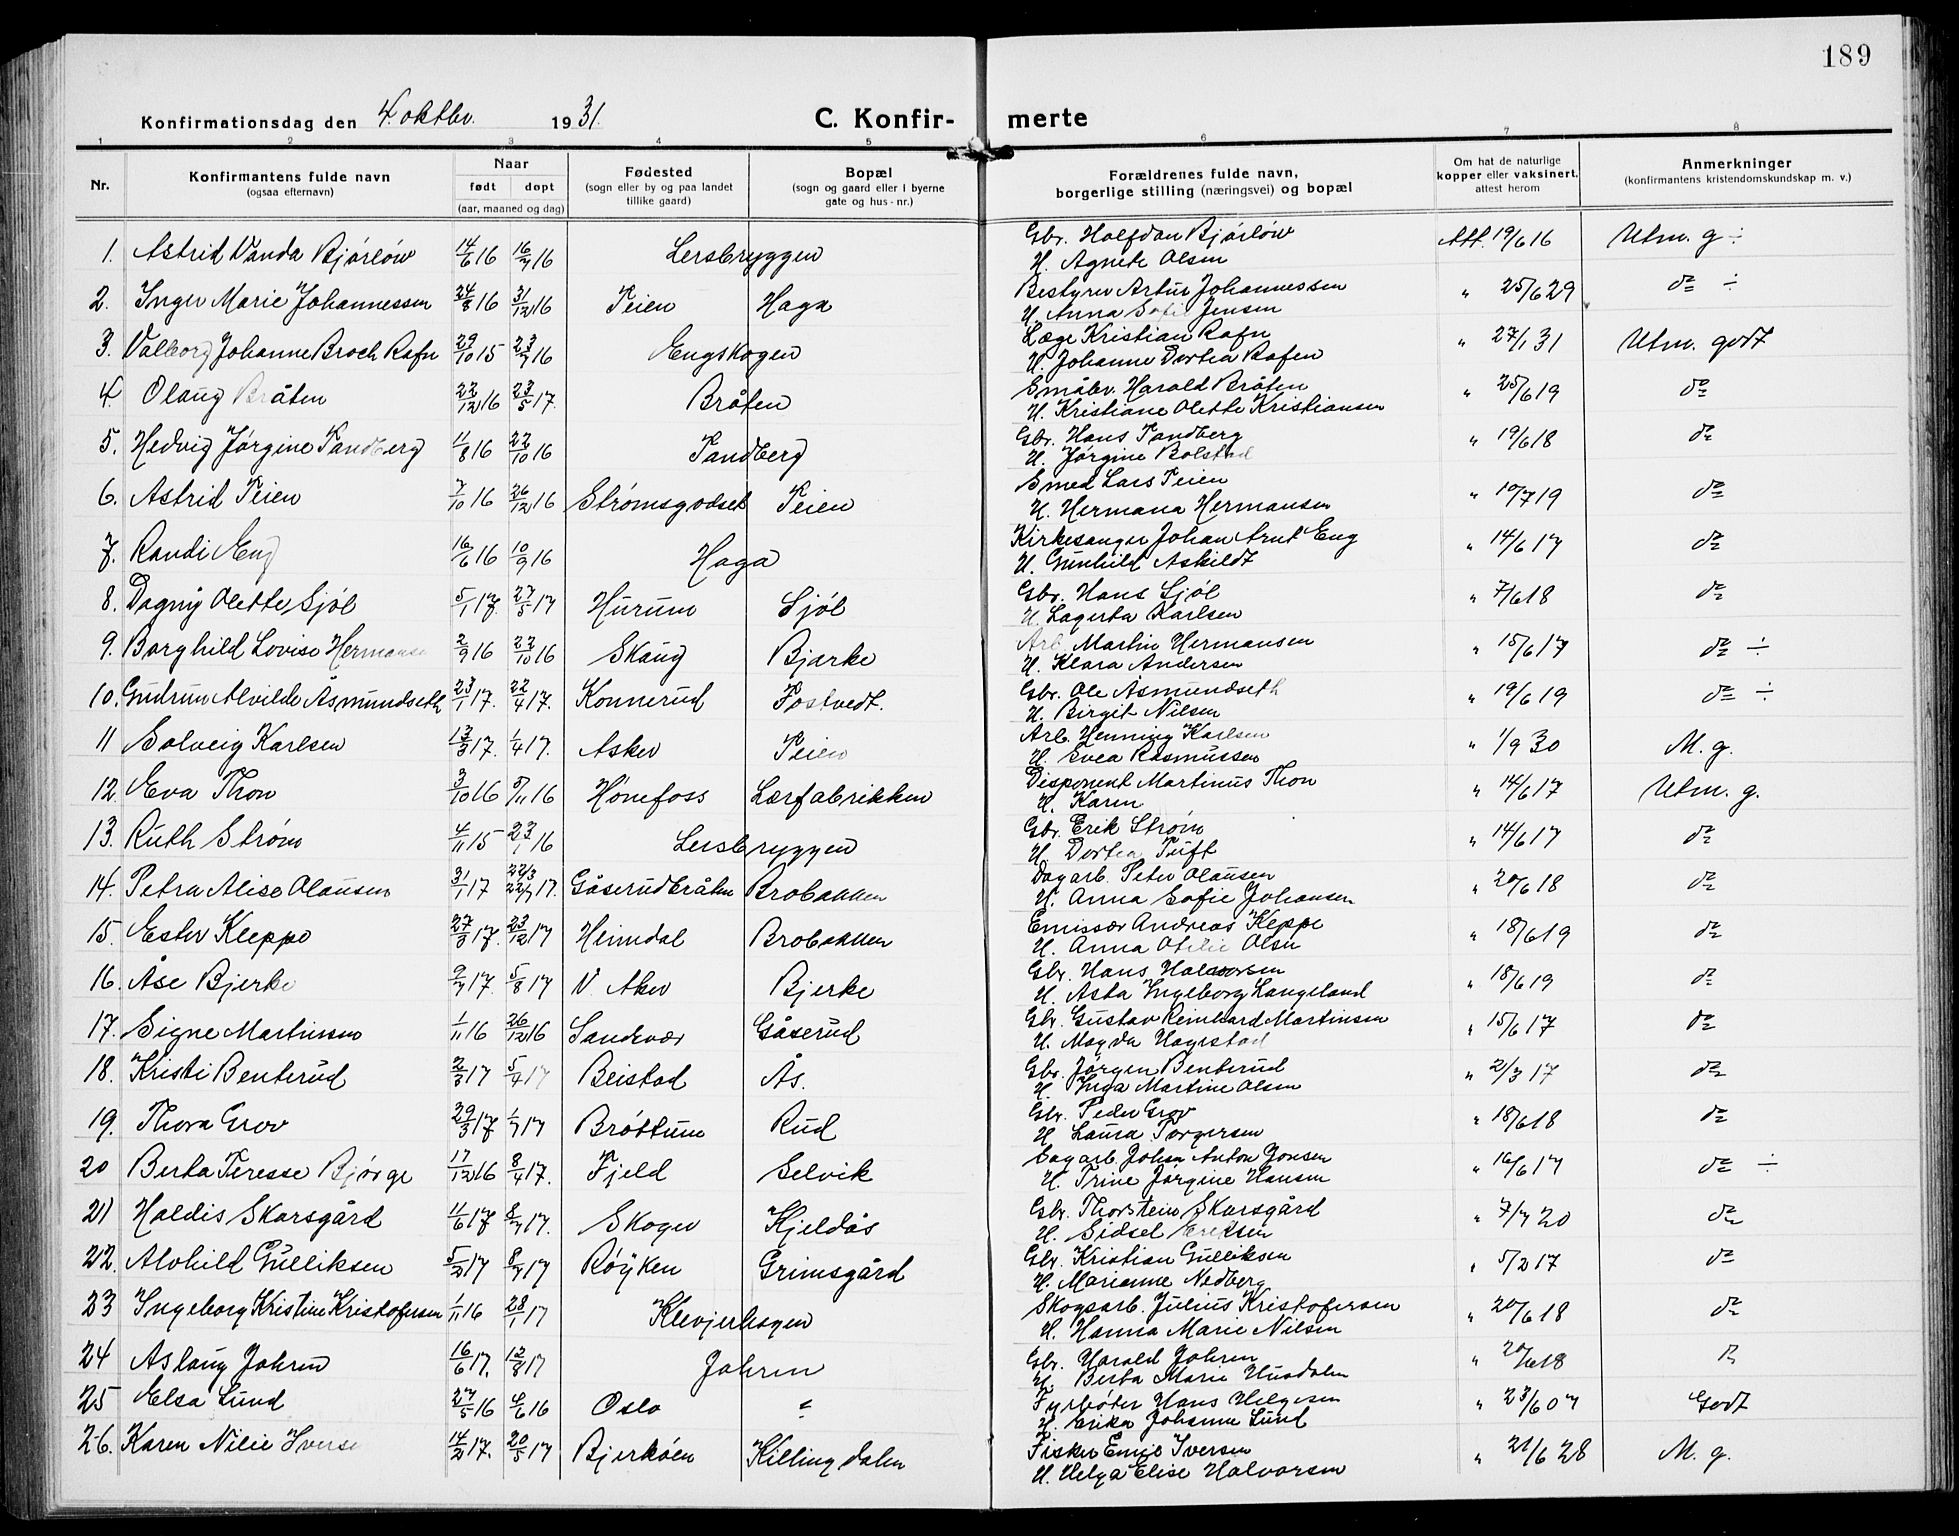 189
Konfirmationsdag den 4. oktbr. 1931. C. Konfirmerte
1 2 3 4 5 6 7 8
Nr.
Konfirmantens fulde navn
(ogsaa efternavn)
Naar
født døpt
(aar, maaned og dag)
Fødested
(sogn eller by og paa landet
tillike gaard)
Bopæl
(sogn og gaard eller i byerne
gate og hus-nr.)
Forældrenes fulde navn,
borgerlige stilling (næringsvei) og bopæl
Om hat de naturlige
kopper eller vaksinert,
attest herom
Anmerkninger
(konfirmantens kristendomskundskap m. v.)
1. Astrid Vanda Bjørløw 14/6 16 16/7 16 Lersbryggen Gbr. Halfdan Bjørløw Att. 19/6 16 Utm. g ÷
H. Agnete Olsen
2. Inger Marie Johannessen 24/8 16 31/12 16 Peien Haga Bestyrer Artur Johannessen " 25/6 29 do ÷
H. Anna Sofie Jensen
3. Valborg Johanne Broch Rafn 29/10 15 23/7 16 Engskogen Læge Kristian Rafn " 27/1 31 Utm. godt
H. Johanne Dortea Rafen
4. Olaug Bråten 22/12 16 23/5 17. Bråten Småbr. Harald Bråten " 25/6 19 do
H. Kristiane Olette Kristiansen
5. Hedvig Jørgine Sandberg 11/8 16 22/10 16 Sandberg Gbr. Hans Sandberg " 19/6 18 do
H. Jørgine Bolstad
6. Astrid Peien 7/10 16 26/12 16 Strømsgodset Peien Smed Lars Peien " 10/7 19 do
H. Hermana Hermansen
7. Randi Eng 16/6 16 10/9 16 Haga Kirkesanger Johan Arnt Eng " 14/6 17 do
H. Gunhild Askildt
8. Dagny Olette Sjøl 5/1 17. 27/5 17 Hurum Sjøl Gbr. Hans Sjøl " 7/6 18 do
H. Lagerta Karlsen
9. Borghild Lovise Hermanse 2/9 16 22/10 16 Skaug Bjerke Arb. Martin Hermansen " 15/6 17 do ÷
H. Klara Andersen
10. Gudrun Alvilde Åsmundseth 23/1 17. 22/4 17. Konnerud Fostvedt. Gbr. Ole Åsmundseth " 19/6 19 do ÷
H. Birgit Nilsen
11 Solveig Karlsen 13/3 17. 1/4 17. Asker Peien Arb. Henning Karlsen " 1/9 30 M. g.
H. Svea Rasmussen
12. Eva Thon 3/10 16 5/11 16 Hønefoss Lærfabrikken Disponent Martinus Thon " 14/6 17 Utm. g.
H. Karen
13. Ruth Strøm 4/11 15 23/1 16 Lersbryggen Gbr. Erik Strøm " 14/6 17 do
H. Dortea Tuft
14. Petra Alise Olausen 31/1 17 22/3 22/7 17. Gåserudbråten Brobakken Dagarb. Peter Olausen " 20/6 18 do
H. Anna Sofie Johansen
15. Ester Kleppe 27/3 17. 23/12 17 Heimdal Brobakken Emissær Andreas Kleppe " 18/6 19 do
H. Anna Otilie Olsen
16. Åse Bjerke 9/7 17. 5/8 17 V. Aker Bjerke Gbr. Hans Halvorsen " 18/6 19 do
H. Asta Ingeborg Langeland
17. Signe Martinsen 1/11 16 26/12 16 Sandsvær Gåserud Gbr. Gustav Reinhard Martinsen " 15/6 17 do
H. Magda Hagestad
18. Kristi Benterud 2/3 17 5/4 17 Beistad Ås. Gbr. Jørgen Benterud " 2/3 17 do
H. Inga Martine Olsen
19. Thora Grov 29/3 17 1/7 17 Brøttum Rud Gbr. Peder Grov " 18/6 18 do
H Laura Torgersen
20 Berta Teresse Bjørge 17/12 16 8/4 17. Fjeld Selvik Sagarb. Johan Anton Jonsen " 16/6 17 do ÷
H. Trine Jørgine Hansen
21 Haldis Skarsgård 11/6 17 8/7 17. Skoger Kjeldås Gbr. Thorstein Skarsgård " 7/7 20 do
H. Sidsel Eriksen
22. Alvhild Gulliksen 5/2 17 8/7 17 Røyken Grimsgård Gbr. Kristian Gulliksen " 5/2 17 do
H. Marianne Nedberg
23 Ingeborg Kristine Kristofersen 1/11 16 28/1 17 Klevjerhagen Skogsarb. Julius Kristofersen " 20/6 18 do
H. Hanna Marie Nilsen
24 Aslaug Jahren 16/6 17. 12/8 17 Jahren Gbr. Harald Jahren " 20/6 18
H. Berta Marie Husdalen
25 Elsa Lund 27/5 16 4/6 16 Oslo " Fyrbøter Hans Helgesen " 23/6 07 Godt
H. Erika Johanne Lund
26. Karen Nilie Iverse 14/2 17. 20/5 17 Bjerkøen Killingdalen Fisker Emil Iversen " 21/6 28 M. g.
H. Helga Elise Halvorsen